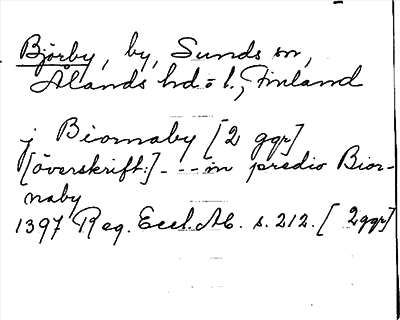 Björby, by, Sunds sn,
Ålands hd. o l., Finland
j Biornaby [2 ggr]
[överskrift:] - - - in predio Bior-
naby
1397 Reg. Eccl. Ab. s. 212. [2 ggr]